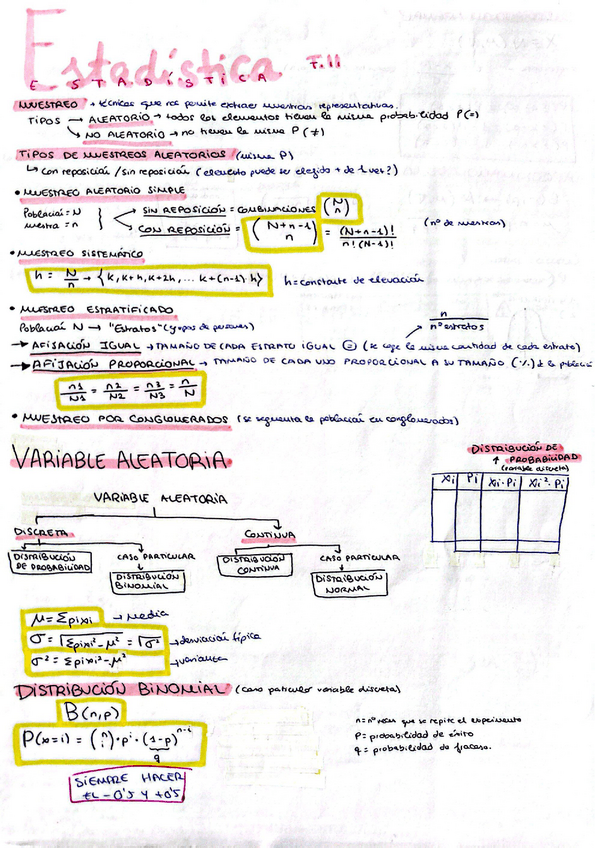 Estadística T.11
ESTADÍSTICA
MUESTREO → técnicas que nos permite extraer muestras representativas.
TIPOS → ALEATORIO → todos los elementos tienen la misma probabilidad P(=)
↘ NO ALEATORIO → no tienen la misma P(≠)
TIPOS DE MUESTREOS ALEATORIOS (misma P)
↳ con reposición / sin reposición (elemento puede ser elegido + de 1 vez?)
• MUESTREO ALEATORIO SIMPLE
Población = N
muestra = n
SIN REPOSICIÓN = COMBINACIONES (N n)
CON REPOSICIÓN = (N+n-1 n) = (N+n-1)! / n!(N-1)!
(nº de muestras)
• MUESTREO SISTEMÁTICO
h = N/n → {k, k+h, k+2h, ... k+(n-1)·h}
h = constante de elevación
• MUESTREO ESTRATIFICADO
Población N → "Estratos" (grupos de personas)
n / nº estratos
→ AFIJACIÓN IGUAL → TAMAÑO DE CADA ESTRATO IGUAL (=) (se coge la misma cantidad de cada estrato)
→ AFIJACIÓN PROPORCIONAL → TAMAÑO DE CADA UNO PROPORCIONAL A SU TAMAÑO (·/.) de la población
n1/N1 = n2/N2 = n3/N3 = n/N
• MUESTREO POR CONGLOMERADOS (se segmenta la población en conglomerados)
VARIABLE ALEATORIA
DISTRIBUCIÓN DE
↑ PROBABILIDAD
(variable discreta)
Xi Pi Xi·Pi Xi²·Pi
VARIABLE ALEATORIA
DISCRETA CONTINUA
DISTRIBUCIÓN DE PROBABILIDAD
CASO PARTICULAR
DISTRIBUCIÓN BINOMIAL
DISTRIBUCIÓN CONTINUA
CASO PARTICULAR
DISTRIBUCIÓN NORMAL
μ = Σpixi → media
σ = √Σpixi²-μ² = √σ² → desviación típica
σ² = Σpixi²-μ² → varianza
DISTRIBUCIÓN BINOMIAL (caso particular variable discreta)
B(n,p)
P(x=i) = (n i)·pⁱ·(1-p)ⁿ⁻ⁱ
q
n = nº veces que se repite el experimento
P = probabilidad de éxito
q = probabilidad de fracaso.
SIEMPRE HACER
EL -0'5 Y +0'5